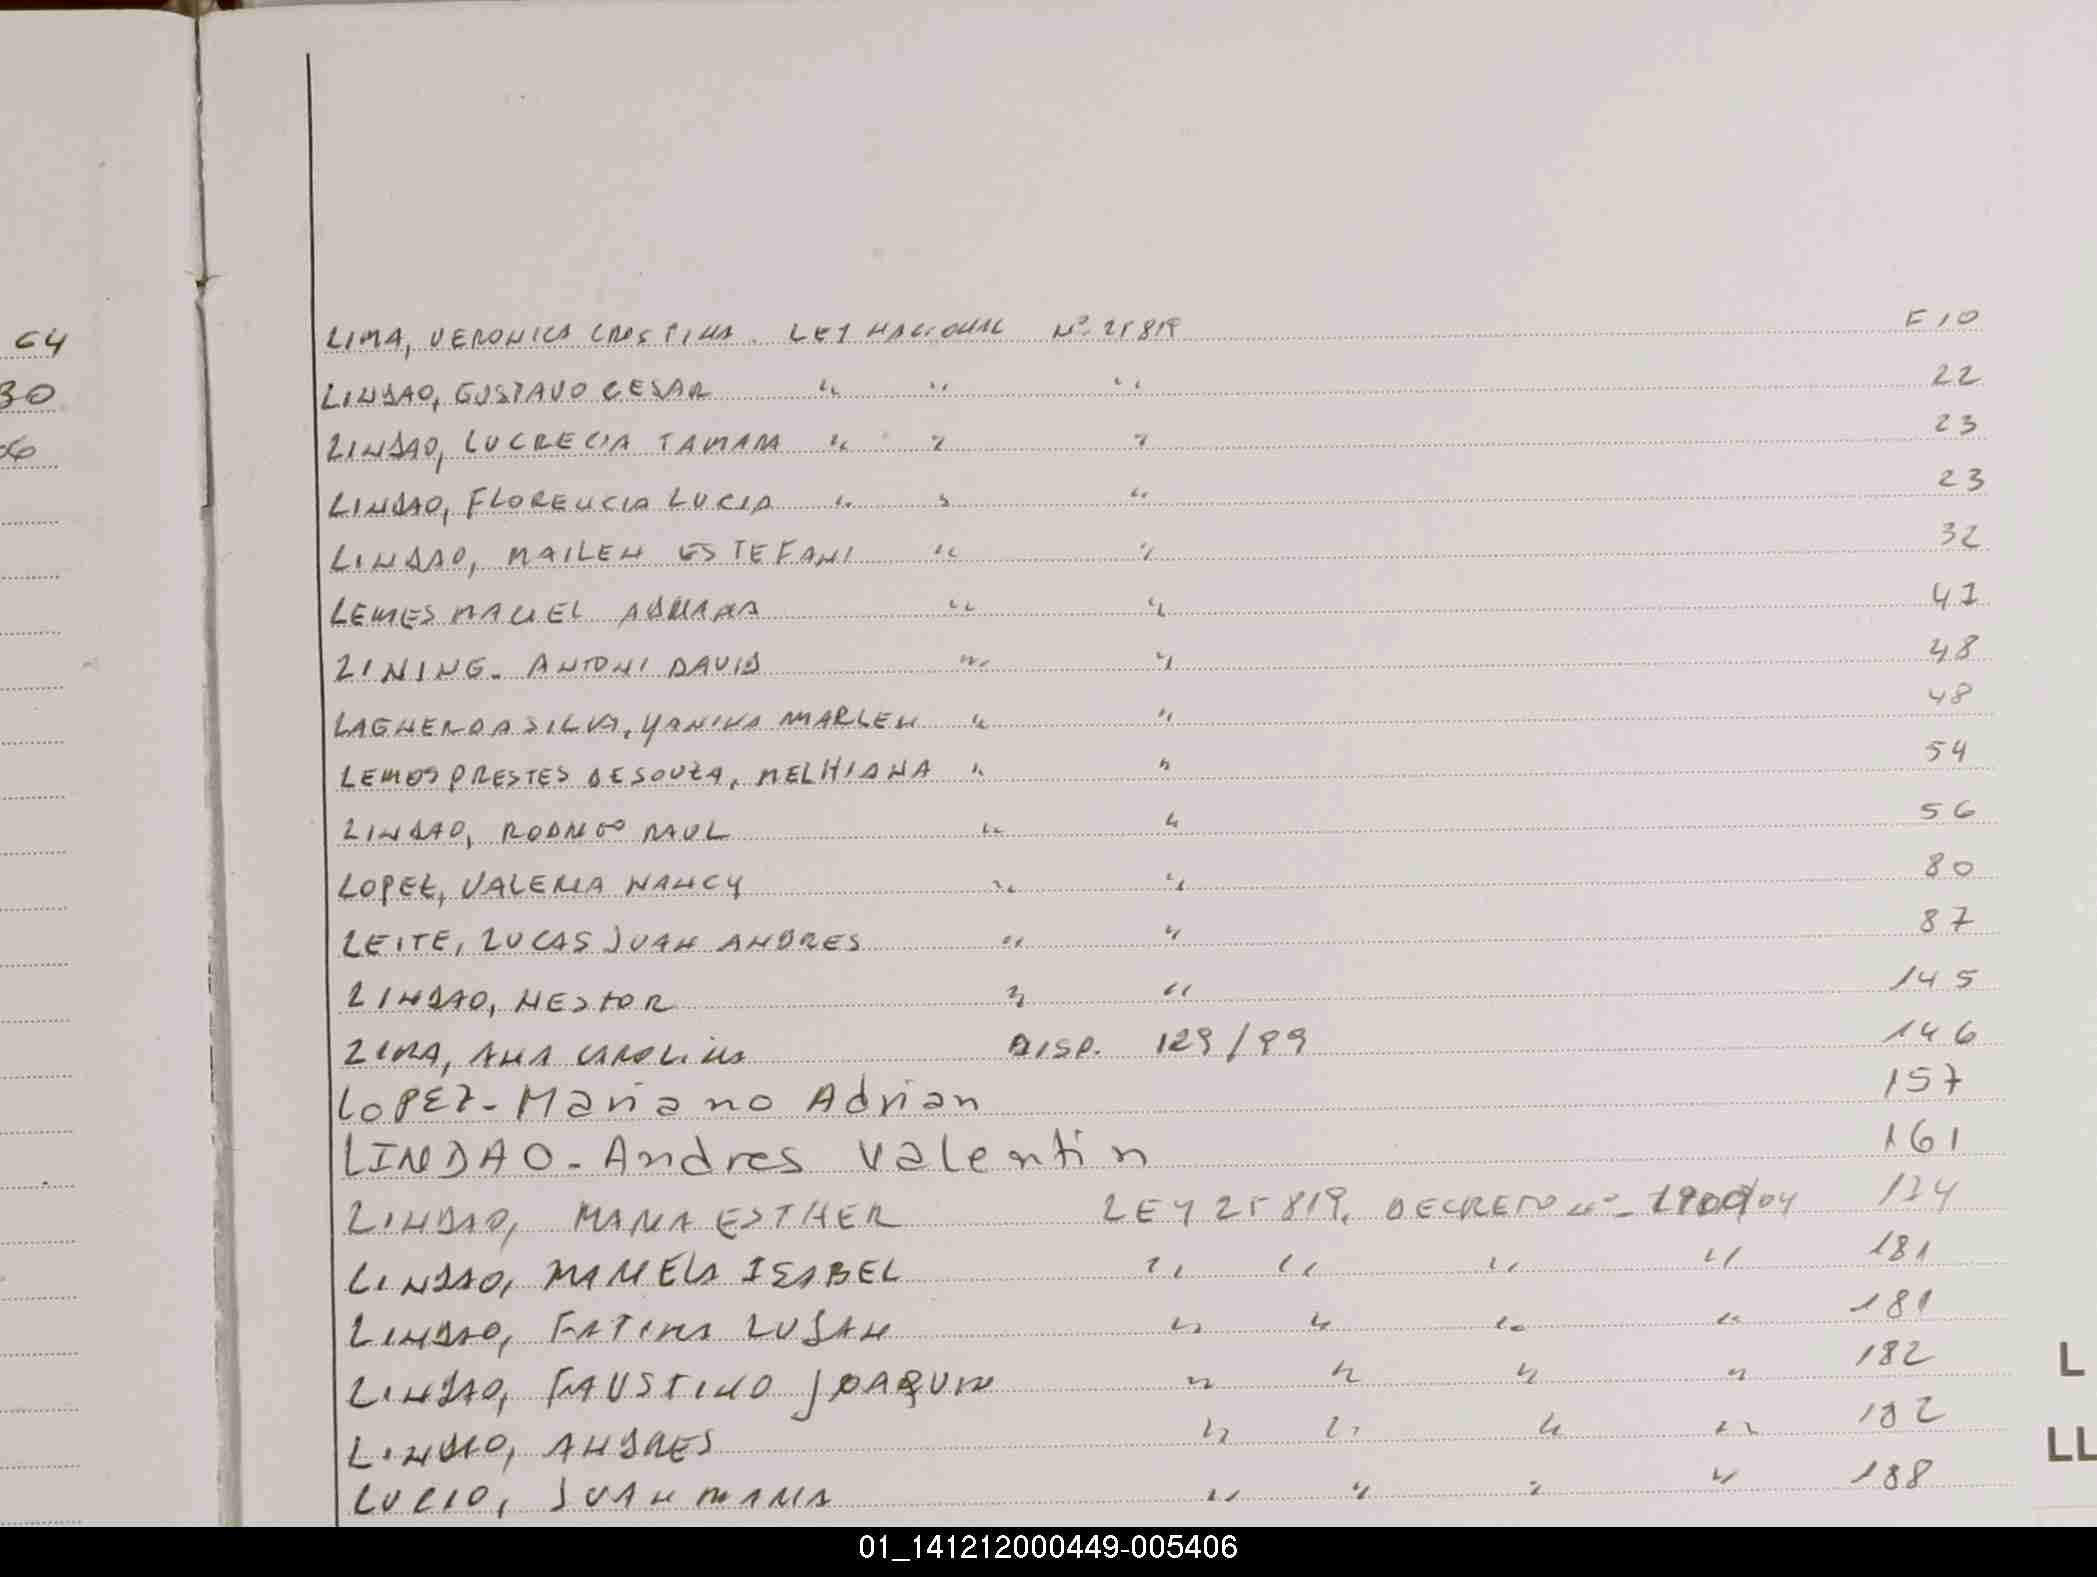 64
30
LIMA, VERONICA CRISTINA. LEY NACIONAL Nº 25819 F 10
LINDAO, GUSTAVO CESAR " " " 22
LINDAO, LUCRECIA TAMARA " " " 23
LINDAO, FLORENCIA LUCIA " " " 23
LINDAO, MAILEN ESTEFANI " " 32
LEMES MACIEL ADRIANA " " 41
LINING. ANTONI DAVID " " 48
DA SILVA, YANINA MARLEN " " 48
LEMOS PRESTES DE SOUZA, MELHIANA " " 54
LINDAO, RODRIGO RAUL " " 56
LOPEZ, VALERIA NANCY " " 80
LEITE, LUCAS JUAN ANDRES " " 87
LINDAO, NESTOR " " 145
LIMA, ANA CAROLINA DISP. 129/99 146
LOPEZ - Mariano Adrian 157
LINDAO - Andres Valentin 161
LINDAO, MARIA ESTHER LEY 25819. DECRETO Nº 174
LINDAO, MARIELA ISABEL " " " " 181
LINDAO, FATIMA LUJAN " " " " 181
LINDAO, FAUSTINO JOAQUIN " " " " 182
LINDAO, ANDRES " " " " 182
LUCIO, JUAN MARIA " " " " 188
L
LL
01_141212000449-005406